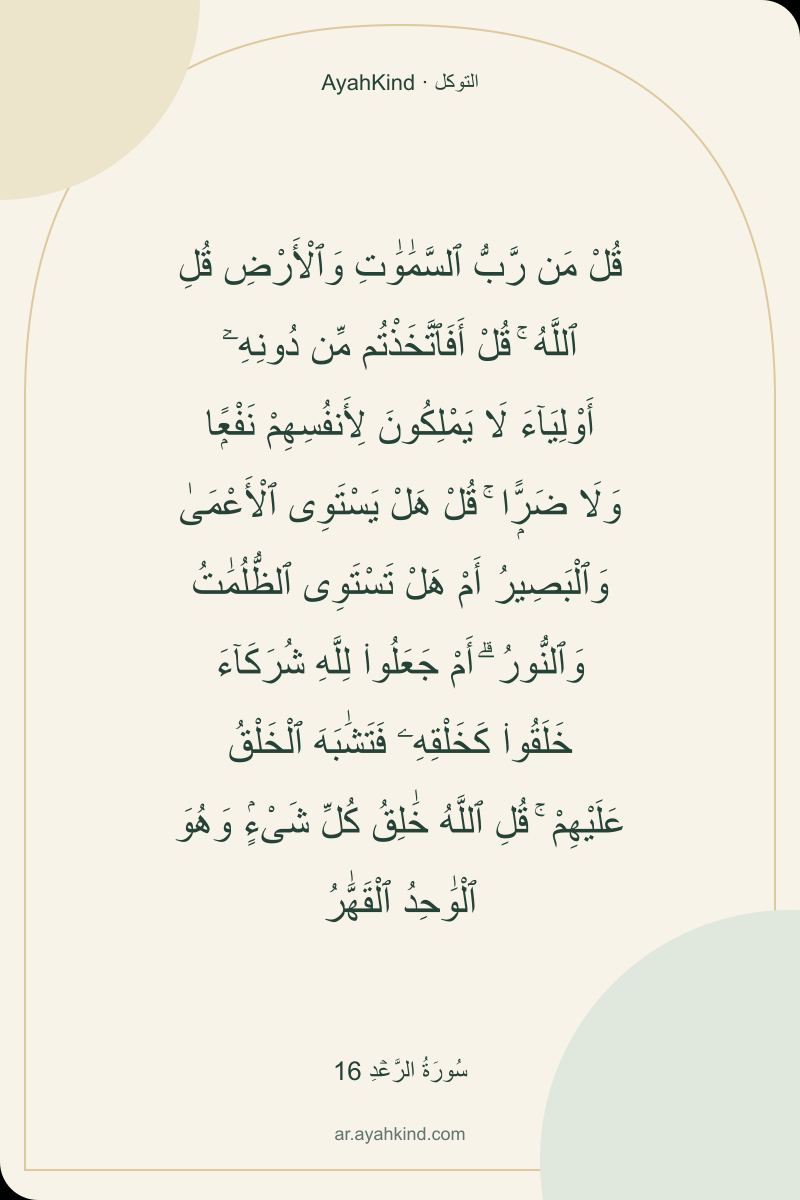 AyahKind · التوكل
قُلْ مَن رَّبُّ ٱلسَّمَٰوَٰتِ وَٱلْأَرْضِ قُلِ
ٱللَّهُ ۚ قُلْ أَفَٱتَّخَذْتُم مِّن دُونِهِۦٓ
أَوْلِيَآءَ لَا يَمْلِكُونَ لِأَنفُسِهِمْ نَفْعًۭا
وَلَا ضَرًّۭا ۚ قُلْ هَلْ يَسْتَوِى ٱلْأَعْمَىٰ
وَٱلْبَصِيرُ أَمْ هَلْ تَسْتَوِى ٱلظُّلُمَٰتُ
وَٱلنُّورُ ۗ أَمْ جَعَلُوا۟ لِلَّهِ شُرَكَآءَ
خَلَقُوا۟ كَخَلْقِهِۦ فَتَشَٰبَهَ ٱلْخَلْقُ
عَلَيْهِمْ ۚ قُلِ ٱللَّهُ خَٰلِقُ كُلِّ شَىْءٍۢ وَهُوَ
ٱلْوَٰحِدُ ٱلْقَهَّٰرُ
سُورَةُ الرَّعْدِ 16
ar.ayahkind.com